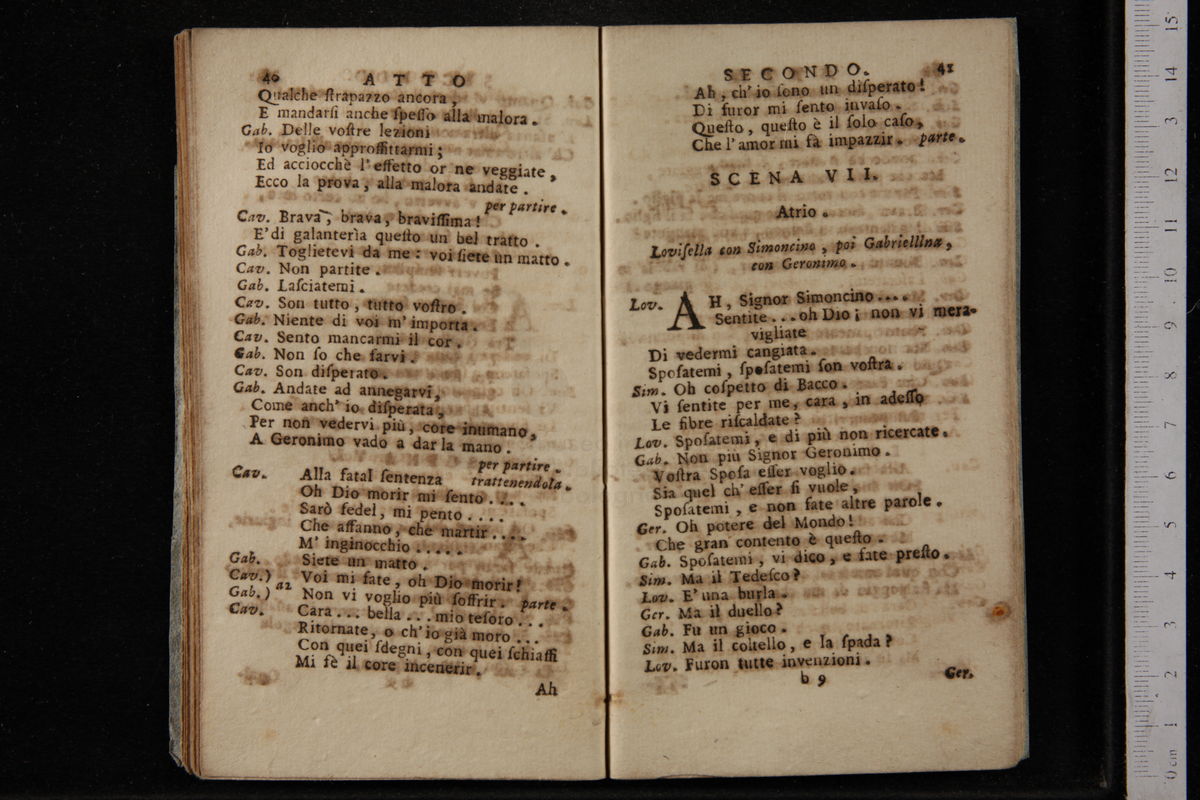 40 ATTO
Qualche ſtrapazzo ancora,
E mandarſi anche ſpeſſo alla malora.
Gab. Delle voſtre lezioni
Io voglio approffittarmi;
Ed acciocchè l'effetto or ne veggiate,
Ecco la prova, alla malora andate.
per partire.
Cav. Brava, brava, braviſſima!
E'di galanterìa queſto un bel tratto.
Gab. Toglietevi da me: voi ſiete un matto.
Cav. Non partite.
Gab. Laſciatemi.
Cav. Son tutto, tutto voſtro.
Gab. Niente di voi m'importa.
Cav. Sento mancarmi il cor.
Gab. Non ſo che farvi.
Cav. Son diſperato.
Gab. Andate ad annegarvi,
Come anch'io diſperata,
Per non vedervi più, core inumano,
A Geronimo vado a dar la mano.
per partire.
Cav. Alla fatal ſentenza trattenendola.
Oh Dio morir mi ſento....
Sarò fedel, mi pento....
Che affanno, che martir....
M'inginocchio.....
Gab. Siete un matto.
Cav.) a2 Voi mi fate, oh Dio morir!
Gab.) Non vi voglio più ſoffrir. parte.
Cav. Cara... bella...mio teſoro...
Ritornate, o ch'io già moro...
Con quei ſdegni, con quei ſchiaffi
Mi fè il core incenerir.
Ah
SECONDO. 41
Ah, ch'io ſono un diſperato!
Di furor mi ſento invaſo.
Queſto, queſto è il ſolo caſo,
Che l'amor mi fà impazzir. parte.
SCENA VII.
Atrio.
Loviſella con Simoncino, poi Gabrielllna,
con Geronimo.
Lov. AH, Signor Simoncino....
Sentite...oh Dio; non vi mera-
vigliate
Di vedermi cangiata.
Spoſatemi, ſpoſatemi ſon voſtra.
Sim. Oh coſpetto di Bacco.
Vi ſentite per me, cara, in adeſſo
Le fibre riſcaldate?
Lov. Spoſatemi, e di più non ricercate.
Gab. Non più Signor Geronimo.
Voſtra Spoſa eſſer voglio.
Sia quel ch'eſſer ſi vuole,
Spoſatemi, e non fate altre parole.
Ger. Oh potere del Mondo!
Che gran contento è queſto.
Gab. Spoſatemi, vi dico, e fate preſto.
Sim. Ma il Tedeſco?
Lov. E'una burla.
Ger. Ma il duello?
Gab. Fu un gioco.
Sim. Ma il coltello, e la ſpada?
Lov. Furon tutte invenzioni.
b 9 Ger.
0 cm 1 2 3 4 5 6 7 8 9 10 11 12 13 14 15